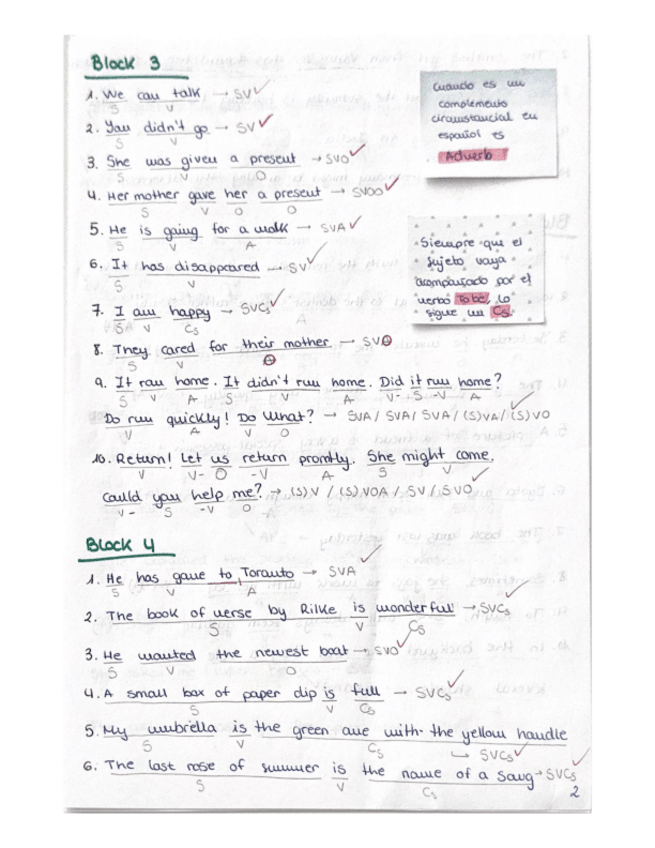 Block 3
1. We can talk → SV
S V
2. You didn't go → SV
S V
3. She was given a present → SVO
S V O
4. Her mother gave her a present → SVOO
S V O O
5. He is going for a walk → SVA
S V A
6. It has disappeared → SV
S V
7. I am happy → SVCs
S V Cs
8. They cared for their mother → SVO
S V O
9. It ran home. It didn't run home. Did it run home?
S V A S V A V- S -V A
Do run quickly! Do what? → SVA / SVA / SVA / (S)VA / (S)VO
V A V O
10. Return! Let us return promtly. She might come,
V V- O -V A S V
could you help me? → (S)V / (S)VOA / SV / SVO
V- S -V O
Cuando es un
complemento
circunstancial en
español es
Adverb
Siempre que el
sujeto vaya
acompañado por el
verbo To be, lo
sigue un Cs.
Block 4
1. He has gone to Toronto → SVA
S V A
2. The book of verse by Rilke is wonderful → SVCs
S V Cs
3. He wanted the newest boat → SVO
S V O
4. A small box of paper clip is full → SVCs
S V Cs
5. My umbrella is the green one with the yellow handle
S V Cs → SVCs
6. The last rose of summer is the name of a song → SVCs
S V Cs
2